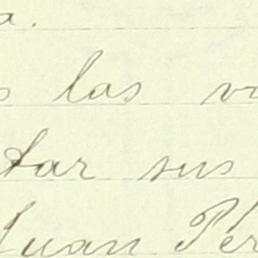 a.
s las vi
tar sus
Juan Pér